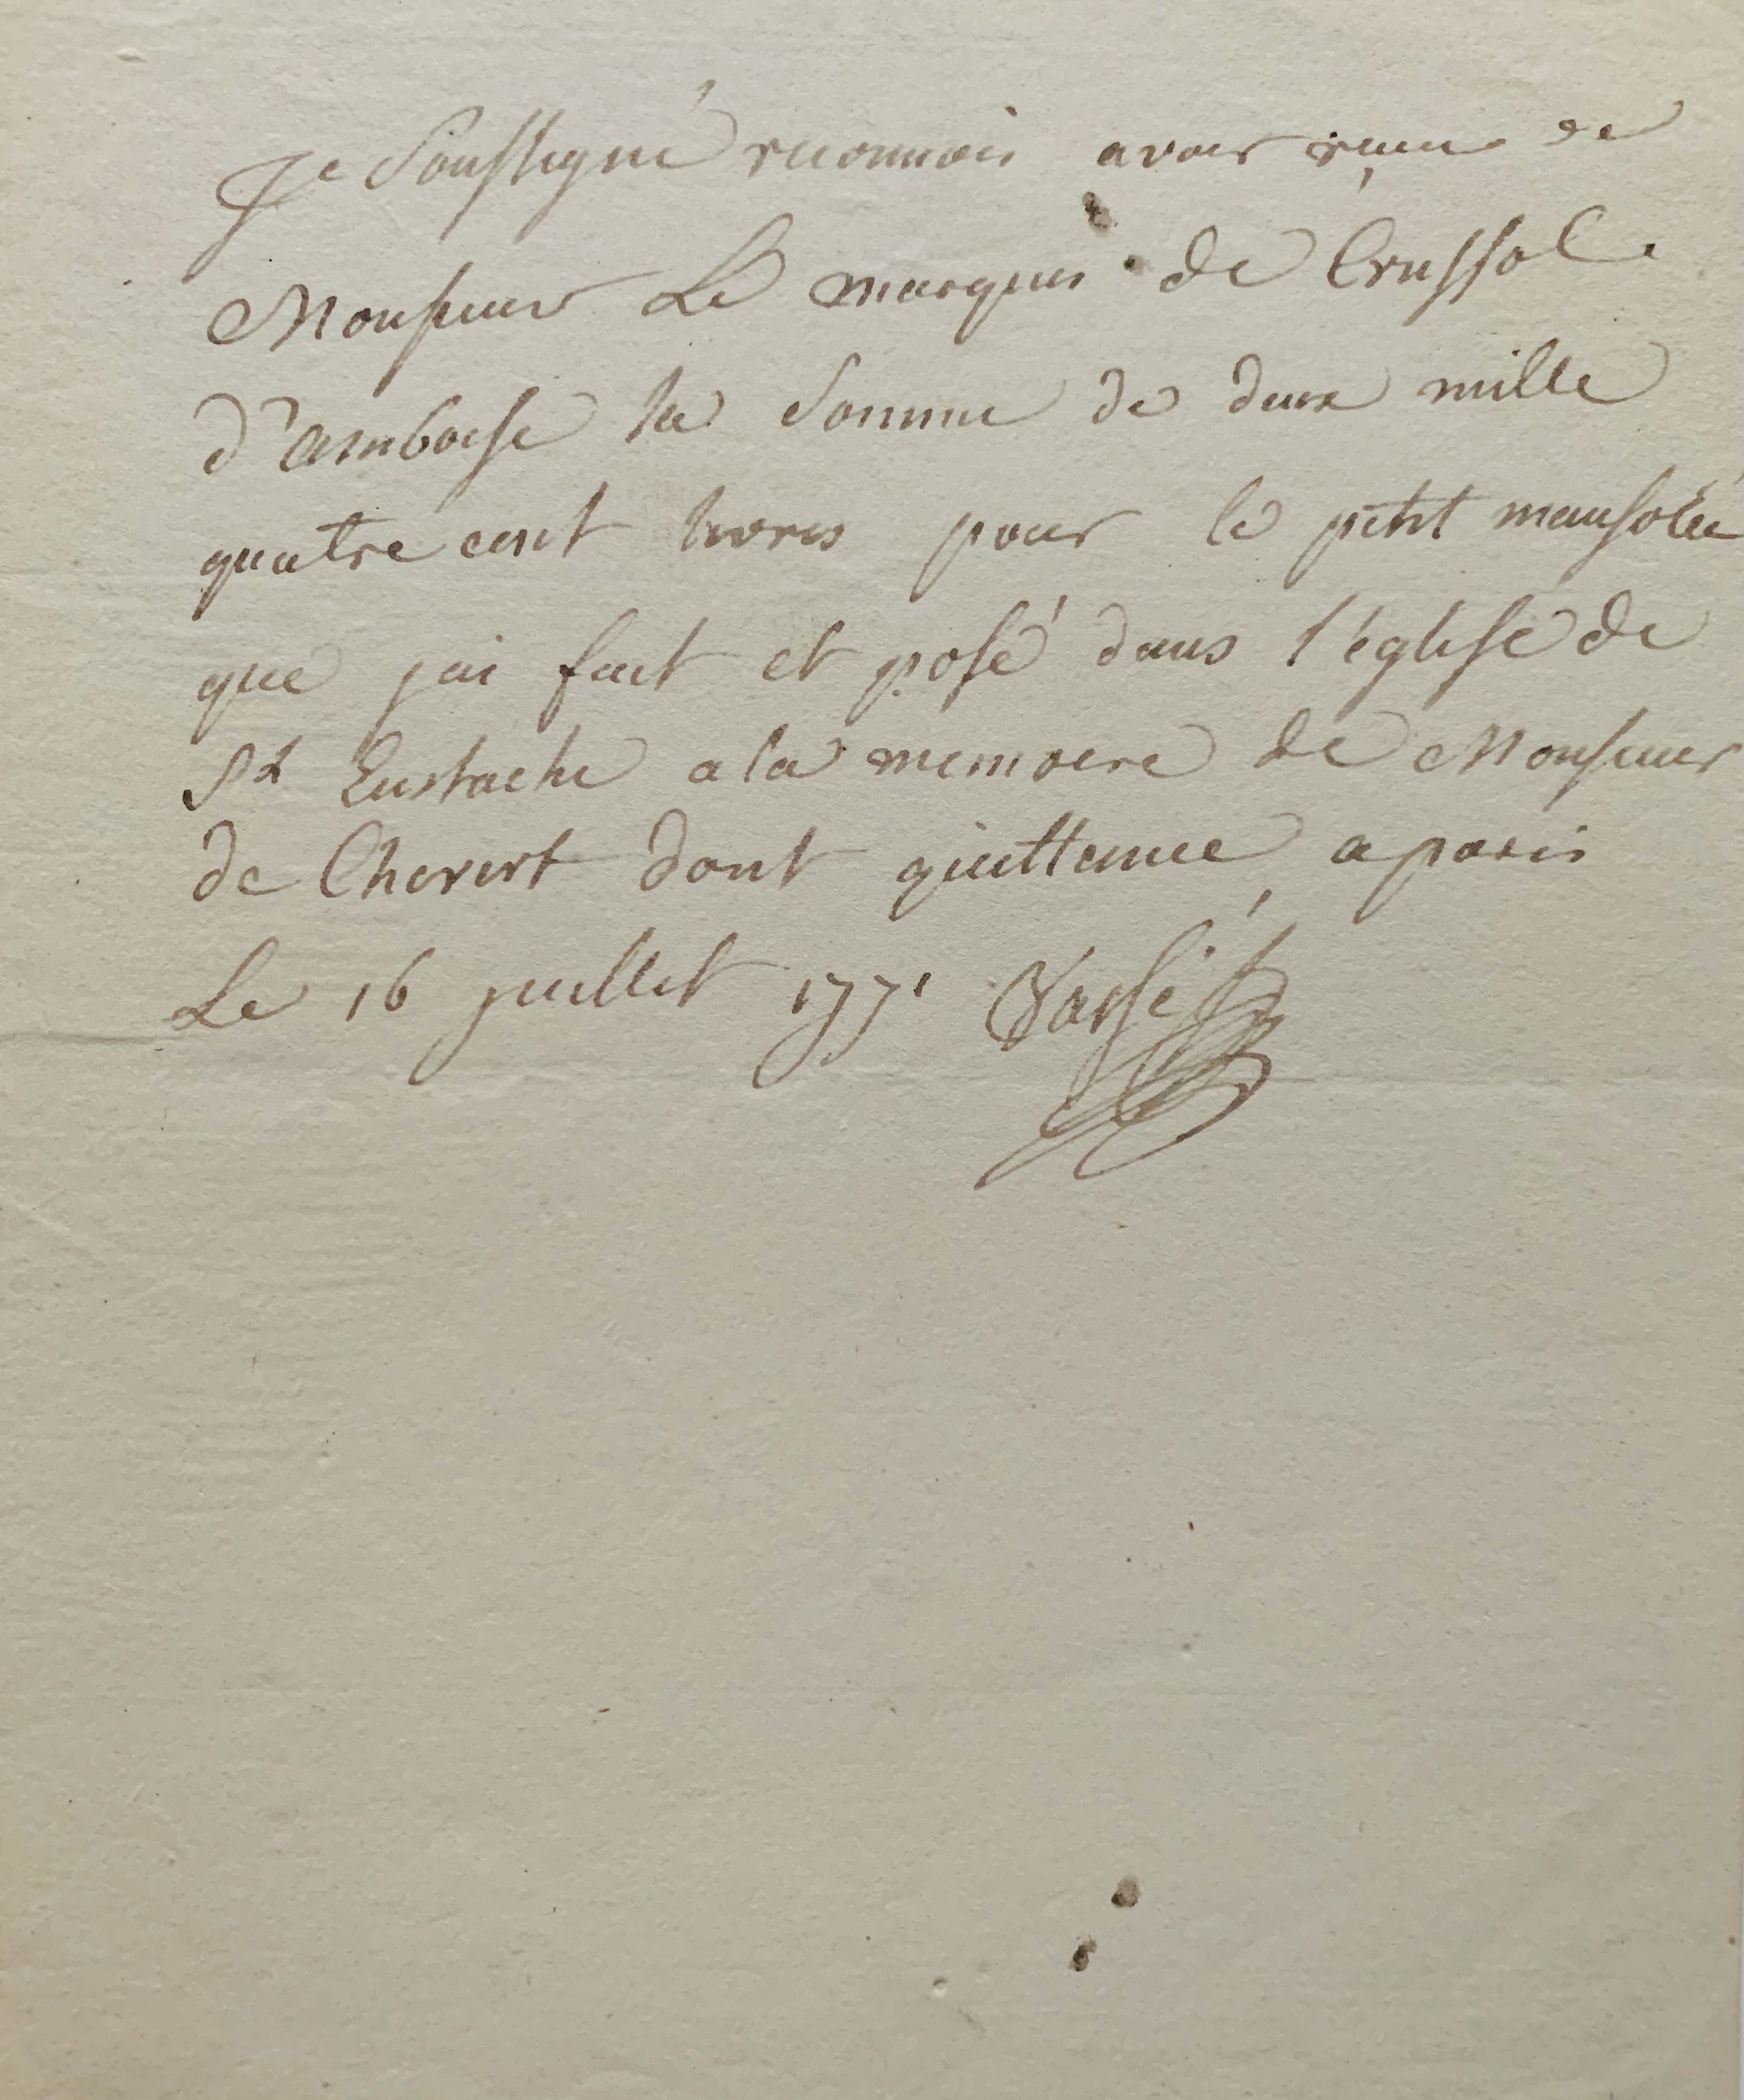 Je Soussigné reconnois avoir reçeu de
Monsieur Le marquis de Crussol
d'amboise la Somme de deux mille
quatre cent livres pour le petit mausolée
que jai fait et posé dans l'église de
St Eustache a la memoire de Monsieur
de Chevert dont quittance a paris
Le 16 juillet 1771 Vassé